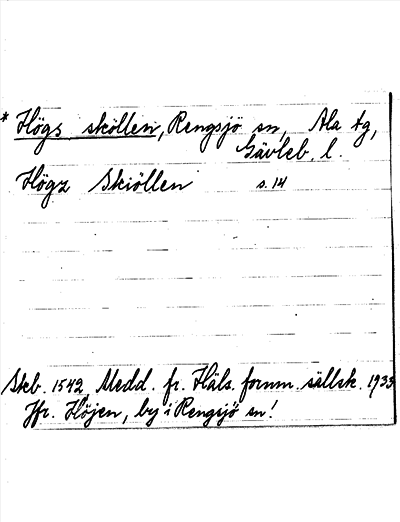 * Högs sköllen, Rengsjö sn, Ala tg,
Gävleb. l.
Högz Skiöllen s. 14
Skb. 1542 Medd. fr. Häls. fornm. sällsk. 1933
Jfr. Höjen, by i Rengsjö sn!